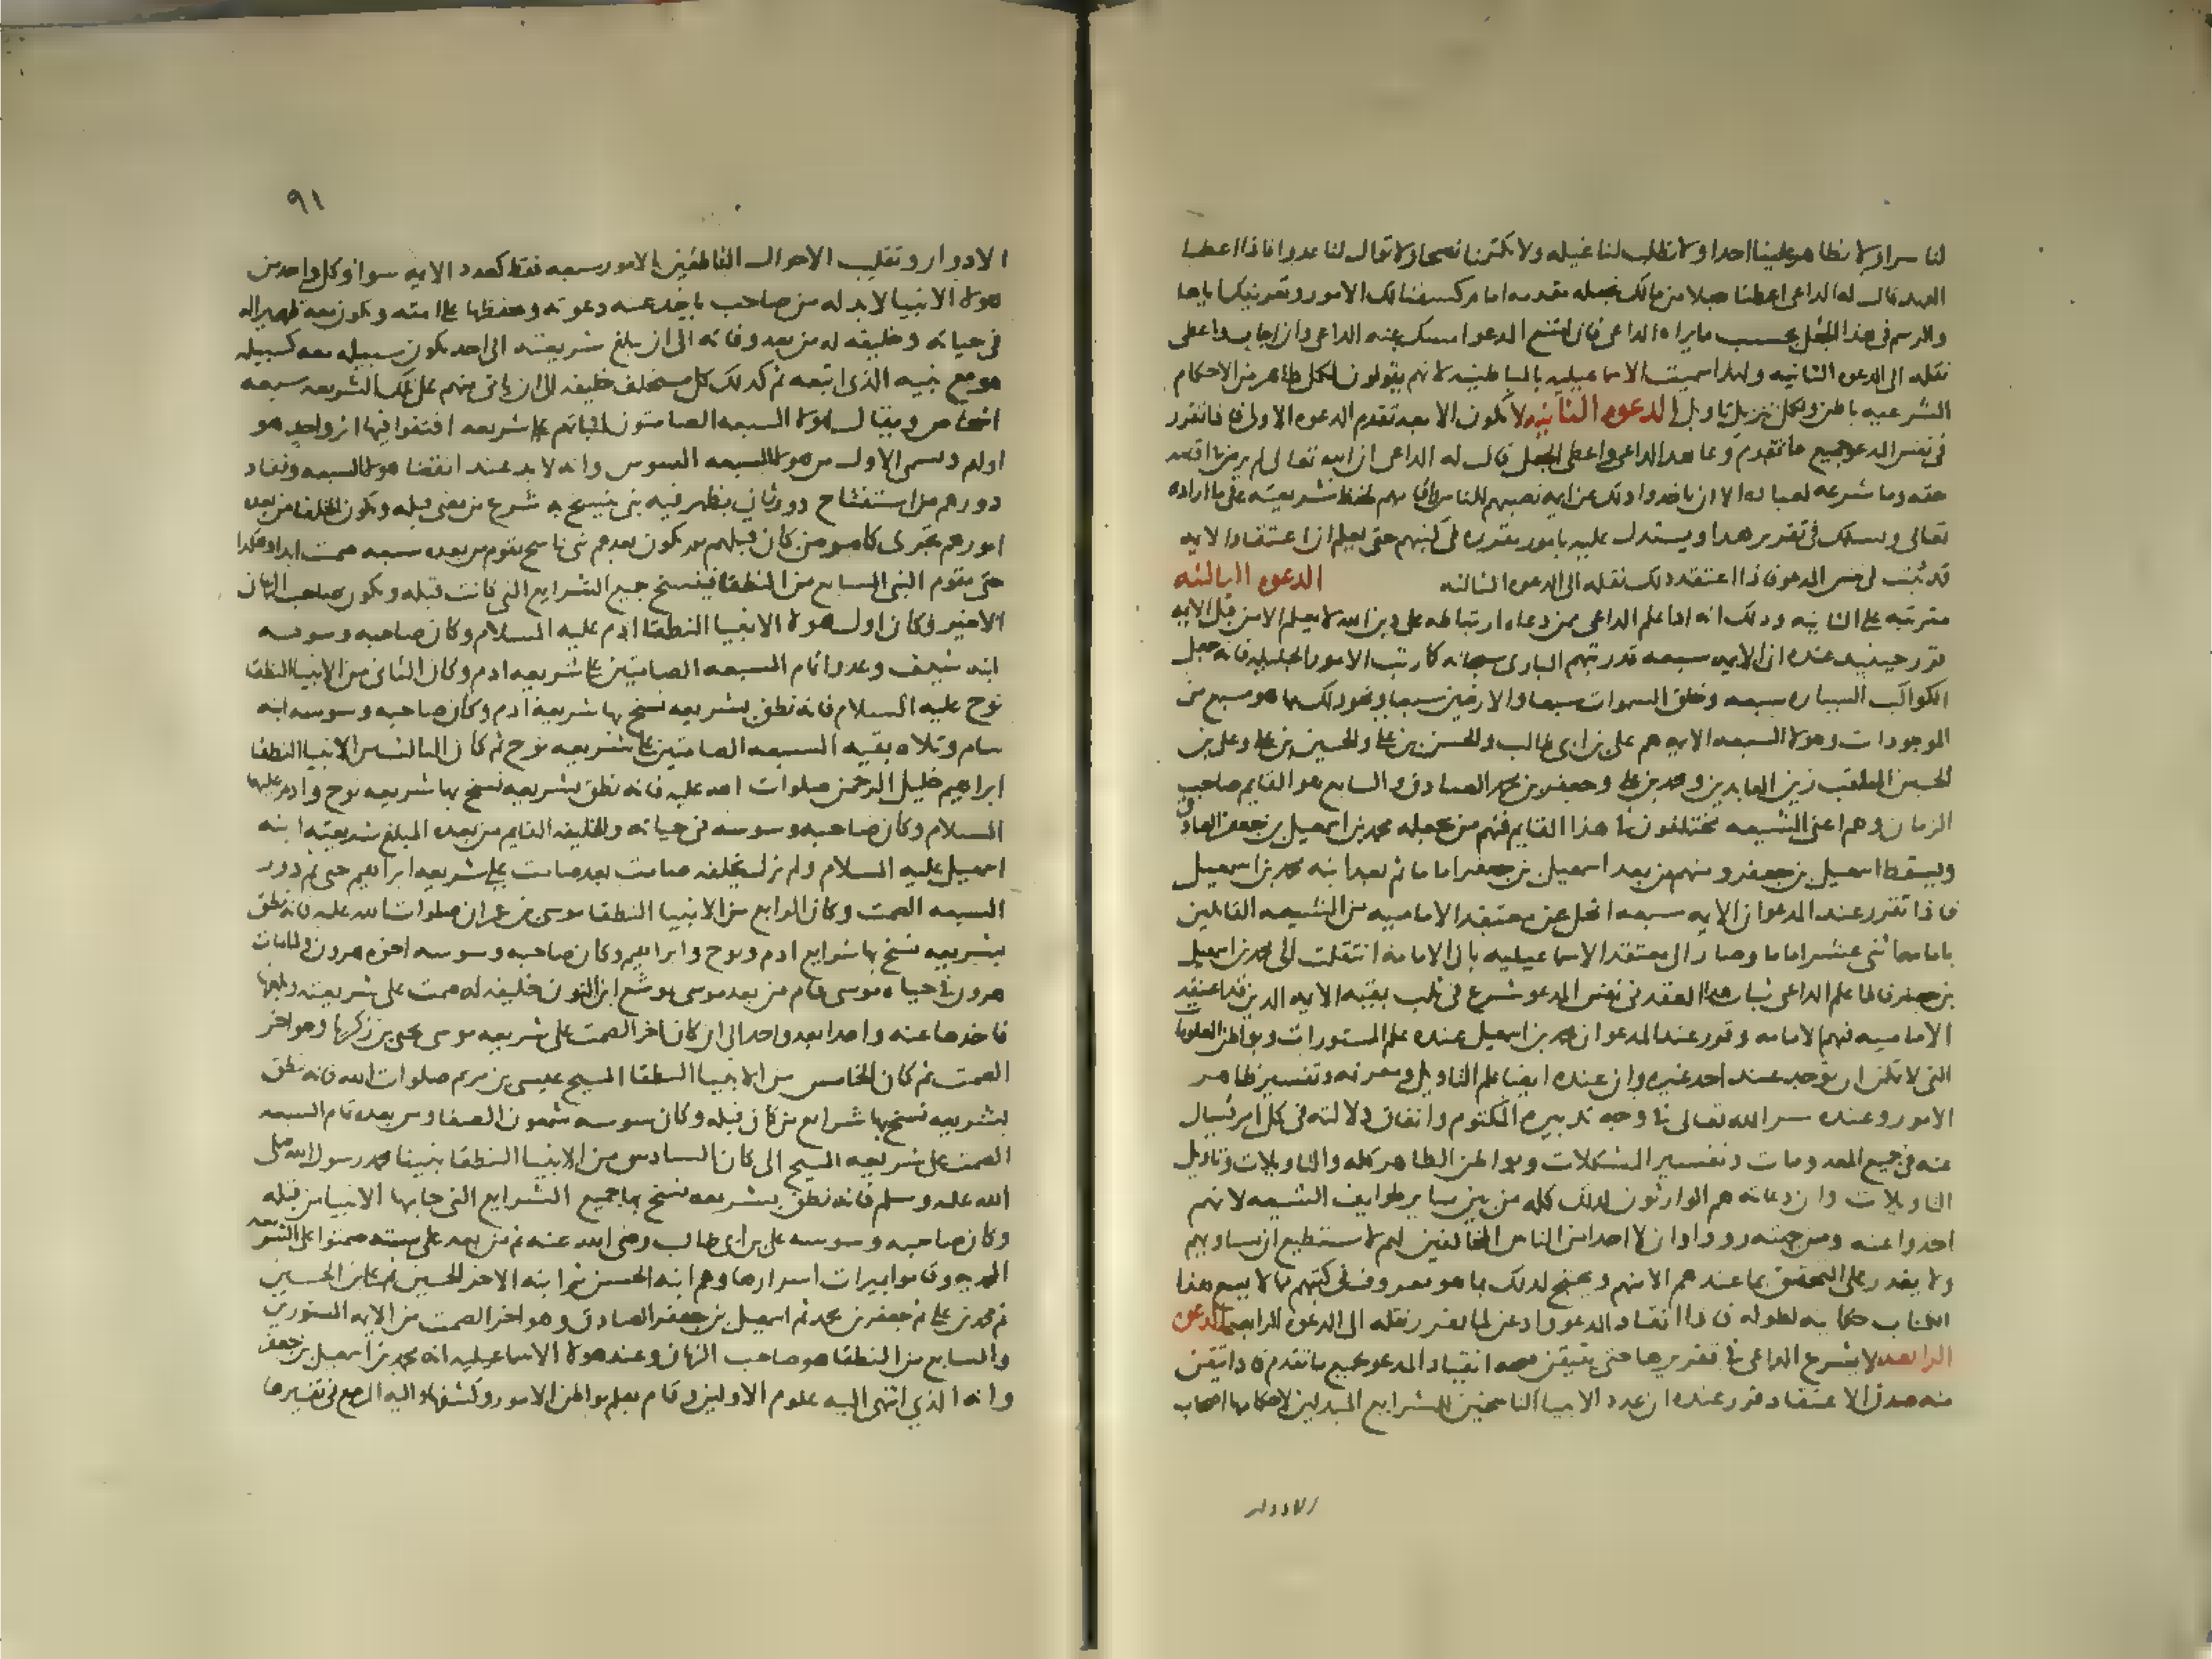 لنا سرا ولا تظاهر علينا احدا ولا تطلب لنا غيله ولا تكتمنا نصحا ولا توال لنا عدوا فاذا اعطا
العهد قال له الداعى اعطنا جعلا من مالك نجعله مقدمه امام كسفنا لك الامور وتعريفك اياها
والرسم فى هذا الجعل بحسب ما يراه الداعى فان امتنع المدعو امسك عنه الداعى وان اجاب واعطى
نقله الى الدعوه الثانيه ولهذا سميت الاسماعيليه بالباطنيه لانهم يقولون لكل ظاهر من الاحكام
الشرعيه باطن ولكل تنزيل تاويل الدعوه الثانيه لا تكون الا بعد تقدم الدعوه الاولى فاذا تقرر
فى نفس المدعو جميع ما تقدم وعاهد الداعى واعطى الجعل قال له الداعى ان الله تعالى لم يرض اقامه
حقه وما شرعه لعباده الا ان ياخذوا ذلك عن ايمه نصبهم للناس واقامهم لحفظ شريعته على ما اراده
تعالى ويسلك فى تقرير هدا ويستدل عليه بامور مقرره فى كتبهم حتى يعلم ان اعتقاد الايمه
قد ثبت فى نفس المدعو فاذا اعتقد دلك نقله الى الدعوه الثالثه الدعوه الثالثه
مترتبه على الثانيه ودلك انه اذا علم الداعى ممن دعاه ارتباطه على دين الله لا يعلم الا من قبل الايمه
قرر حينيد عنده ان الايمه سبعه قد رتبهم البارى سبحانه كما رتب الامور الجليله فانه جعل
الكواكب السياره سبعه وخلق السموات سبعا والارضين سبعا ونحو دلك مما هو سبع من
الموجودات وهولا السبعه الايمه هم على بن ابى طالب والحسن بن على والحسين بن على وعلى بن
الحسين الملقب زين العابدين ومحمد بن على وجعفر بن محمد الصادق والسابع هو القايم صاحب
الزمان وهم اعنى الشيعه مختلفون فى هذا القايم فمنهم من يجعله محمد بن اسمعيل بن جعفر الصادق
ويسقط اسمعيل بن جعفر ومنهم من يعد اسمعيل بن جعفر اماما ثم يعد ابنه محمد بن اسمعيل
فاذا تقرر عند المدعو ان الايمه سبعه انحل عن معتقد الاماميه من الشيعه القايلين
بامامه اثنى عشر اماما وصار الى معتقد الاسماعيليه بان الامامه انتقلت الى محمد بن اسمعيل
بن جعفر فاذا علم الداعى ثبات هذا العقد فى نفس المدعو شرع فى ثلب بقيه الايمه الدين قد اعتقد
الاماميه فيهم الامامه وقرر عند المدعو ان محمد بن اسمعيل عنده علم المستورات وبواطن المعلومات
التى لا يمكن ان توجد عند احد غيره وان عنده ايضا علم التاويل ومعرفه تفسير ظاهر
الامور وعنده سر الله تعالى فى وجه تدبيره المكتوم واتقان دلالته فى كل امر يسال
عنه فى جميع المعدومات وتفسير المشكلات وبواطن الظاهر كله والتاويلات وتاويل
التاويلات وان دعاته هم الوارثون لذلك كله من بين ساير طوايف الشيعه لانهم
اخذوا عنه ومن جهته رووا وان لا احد من الناس المخالفين لهم لا يستطيع ان يساويهم
ولا يقدر على التحقيق بما عندهم الا منهم ويحتج لدلك بما هو معروف فى كتبهم مما لا يسع هذا
الكتاب حكايته لطوله فاذا انقاد المدعو واذعن لما تقرر نقله الى الدعوه الرابعه الدعوه
الرابعه لا يشرع الداعى فى تقريرها حتى يتيقن صحه انقياد المدعو لجميع ما تقدم فاذا تيقن
منه صحه الاعتقاد قرر عنده ان عدد الانبيا الناسخين للشرايع المبدلين لاحكامها اصحاب
الادوار
٩١
الادوار وتقليب الاحوال الناطقين بالامور سبعه فقط كعدد الايمه سوا وكل واحد من
هولا الانبيا لابد له من صاحب ياخذ عنه دعوته ويحفظها على امته ويكون معه ظهيرا له
فى حياته وخليفه له من بعد وفاته الى ان يبلغ شريعته الى احد يكون سبيله معه كسبيله
هو مع نبيه الذى اتبعه ثم كدلك كل مستخلف خليفه الى ان ياتى منهم على تلك الشريعه سبعه
اشخاص ويقال لهولا السبعه الصامتون لثباتهم على شريعه اقتفوا فيها اثر واحد هو
اولهم ويسمى الاول من هولا السبعه السوس وانه لابد عند انقضا هولا السبعه ونفاد
دورهم من استفتاح دور ثانى يظهر فيه نبى ينسخ به شرع من مضى قبله ويكون الخلفا من بعده
امورهم تجرى كامور من كان قبلهم ثم يكون بعدهم نبى ناسخ يقوم من بعده سبعه صمت ابدا وهكدا
حتى يقوم النبى السابع من النطقا فينسخ جميع الشرايع التى كانت قبله ويكون صاحب الزمان
الاخير وكان اول هولا الانبيا النطقا ادم عليه السلام وكان صاحبه وسوسه
ابنه شيث وعدوا تمام السبعه الصامتين على شريعه ادم وكان الثانى من الانبيا النطقا
نوح عليه السلام فانه نطق بشريعه نسخ بها شريعه ادم وكان صاحبه وسوسه ابنه
سام وتلاه بقيه السبعه الصامتين على شريعه نوح ثم كان الثالث من الانبيا النطقا
ابراهيم خليل الرحمن صلوات الله عليه فانه نطق بشريعه نسخ بها شريعه نوح وادم عليهما
السلام وكان صاحبه وسوسه فى حياته والخليفه القايم من بعده المبلغ شريعته ابنه
اسمعيل عليه السلام ولم يزل يخلفه صامت بعد صامت على شريعه ابراهيم حتى تم دور
السبعه الصمت وكان الرابع من الانبيا النطقا موسى بن عمران صلوات الله عليه فانه نطق
بشريعه نسخ بها شرايع ادم ونوح وابراهيم وكان صاحبه وسوسه اخوه هرون ولما مات
هرون فى حياه موسى قام من بعد موسى يوشع ابن النون خليفه له صمت على شريعته وبلغها
فاخذها عنه واحد بعد واحد الى ان كان اخر الصمت على شريعه موسى يحيى بن زكريا وهو اخر
الصمت ثم كان الخامس من الانبيا النطقا المسيح عيسى بن مريم صلوات الله عليه فانه نطق
بشريعه نسخ بها شرايع من كان قبله وكان سوسه شمعون الصفا ومن بعده تمام السبعه
الصمت على شريعه المسيح الى كان السادس من الانبيا النطقا نبينا محمد رسول الله صلى
الله عليه وسلم فانه نطق بشريعه نسخ بها جميع الشرايع التى جا بها الانبيا من قبله
وكان صاحبه وسوسه على بن ابى طالب رضى الله عنه ثم من بعد على سته صمتوا على الشريعه
المحمديه وقاموا بميراث اسرارها وهم ابنه الحسن ثم ابنه الاخر الحسين ثم على بن الحسين
ثم محمد بن على ثم جعفر بن محمد ثم اسمعيل بن جعفر الصادق وهو اخر الصمت من الايمه المستورين
والسابع من النطقا هو صاحب الزمان وعند هولا الاسماعيليه انه محمد بن اسمعيل بن جعفر
وانه الذى انتهى اليه علوم الاولين وقام بعلم بواطن الامور وكشفها واليه المرجع فى تفسيرها